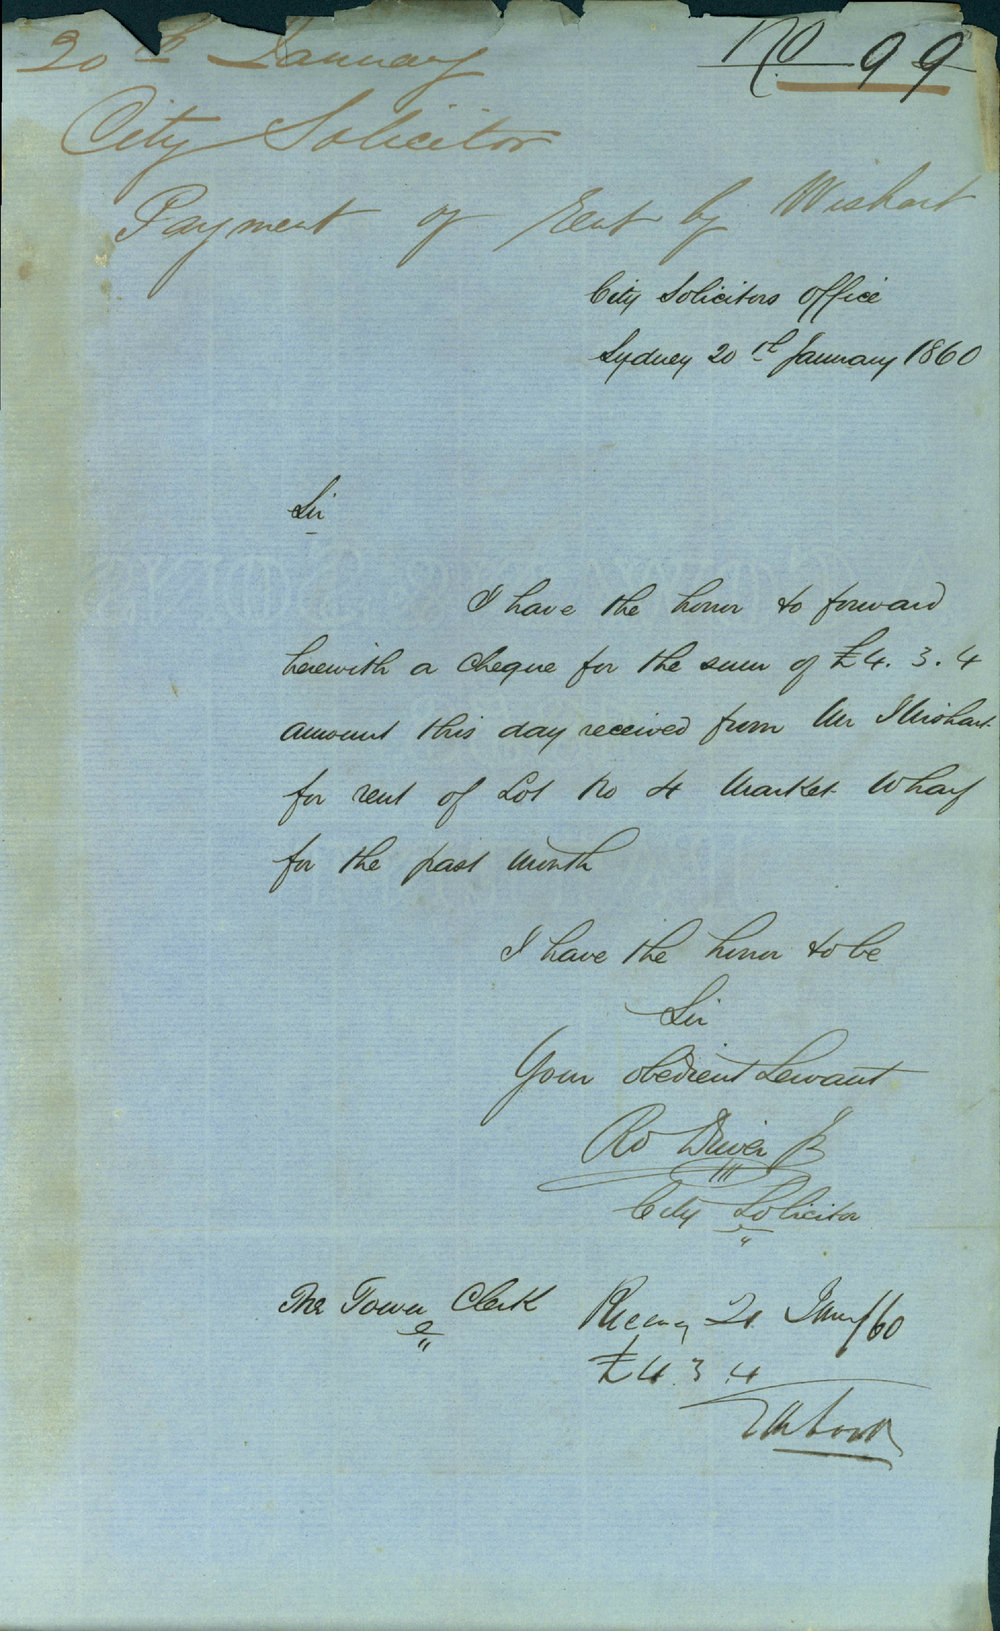 20th January
No 99
City Solicitor
Payment of Rent by Wishart
City Solicitors Office
Sydney 20th January 1860
Sir
I have the honor to forward
herewith a cheque for the sum of £4. 3. 4
amount this day received from Mr J Wishart
for rent of Lot No 4 Market Wharf
for the past month
I have the honor to be
Sir
Your obedient Servant
Rd Driver Jr
City Solicitor
The Town Clerk
20 Jany/60
£4.3.4